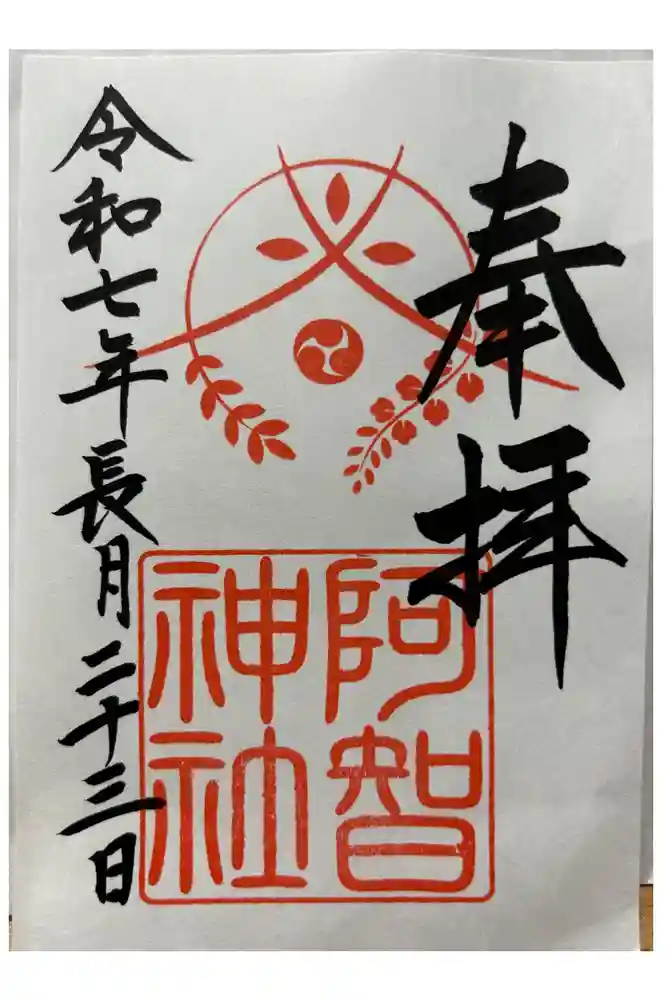 奉拝
阿智
神社
令和七年長月二十三日